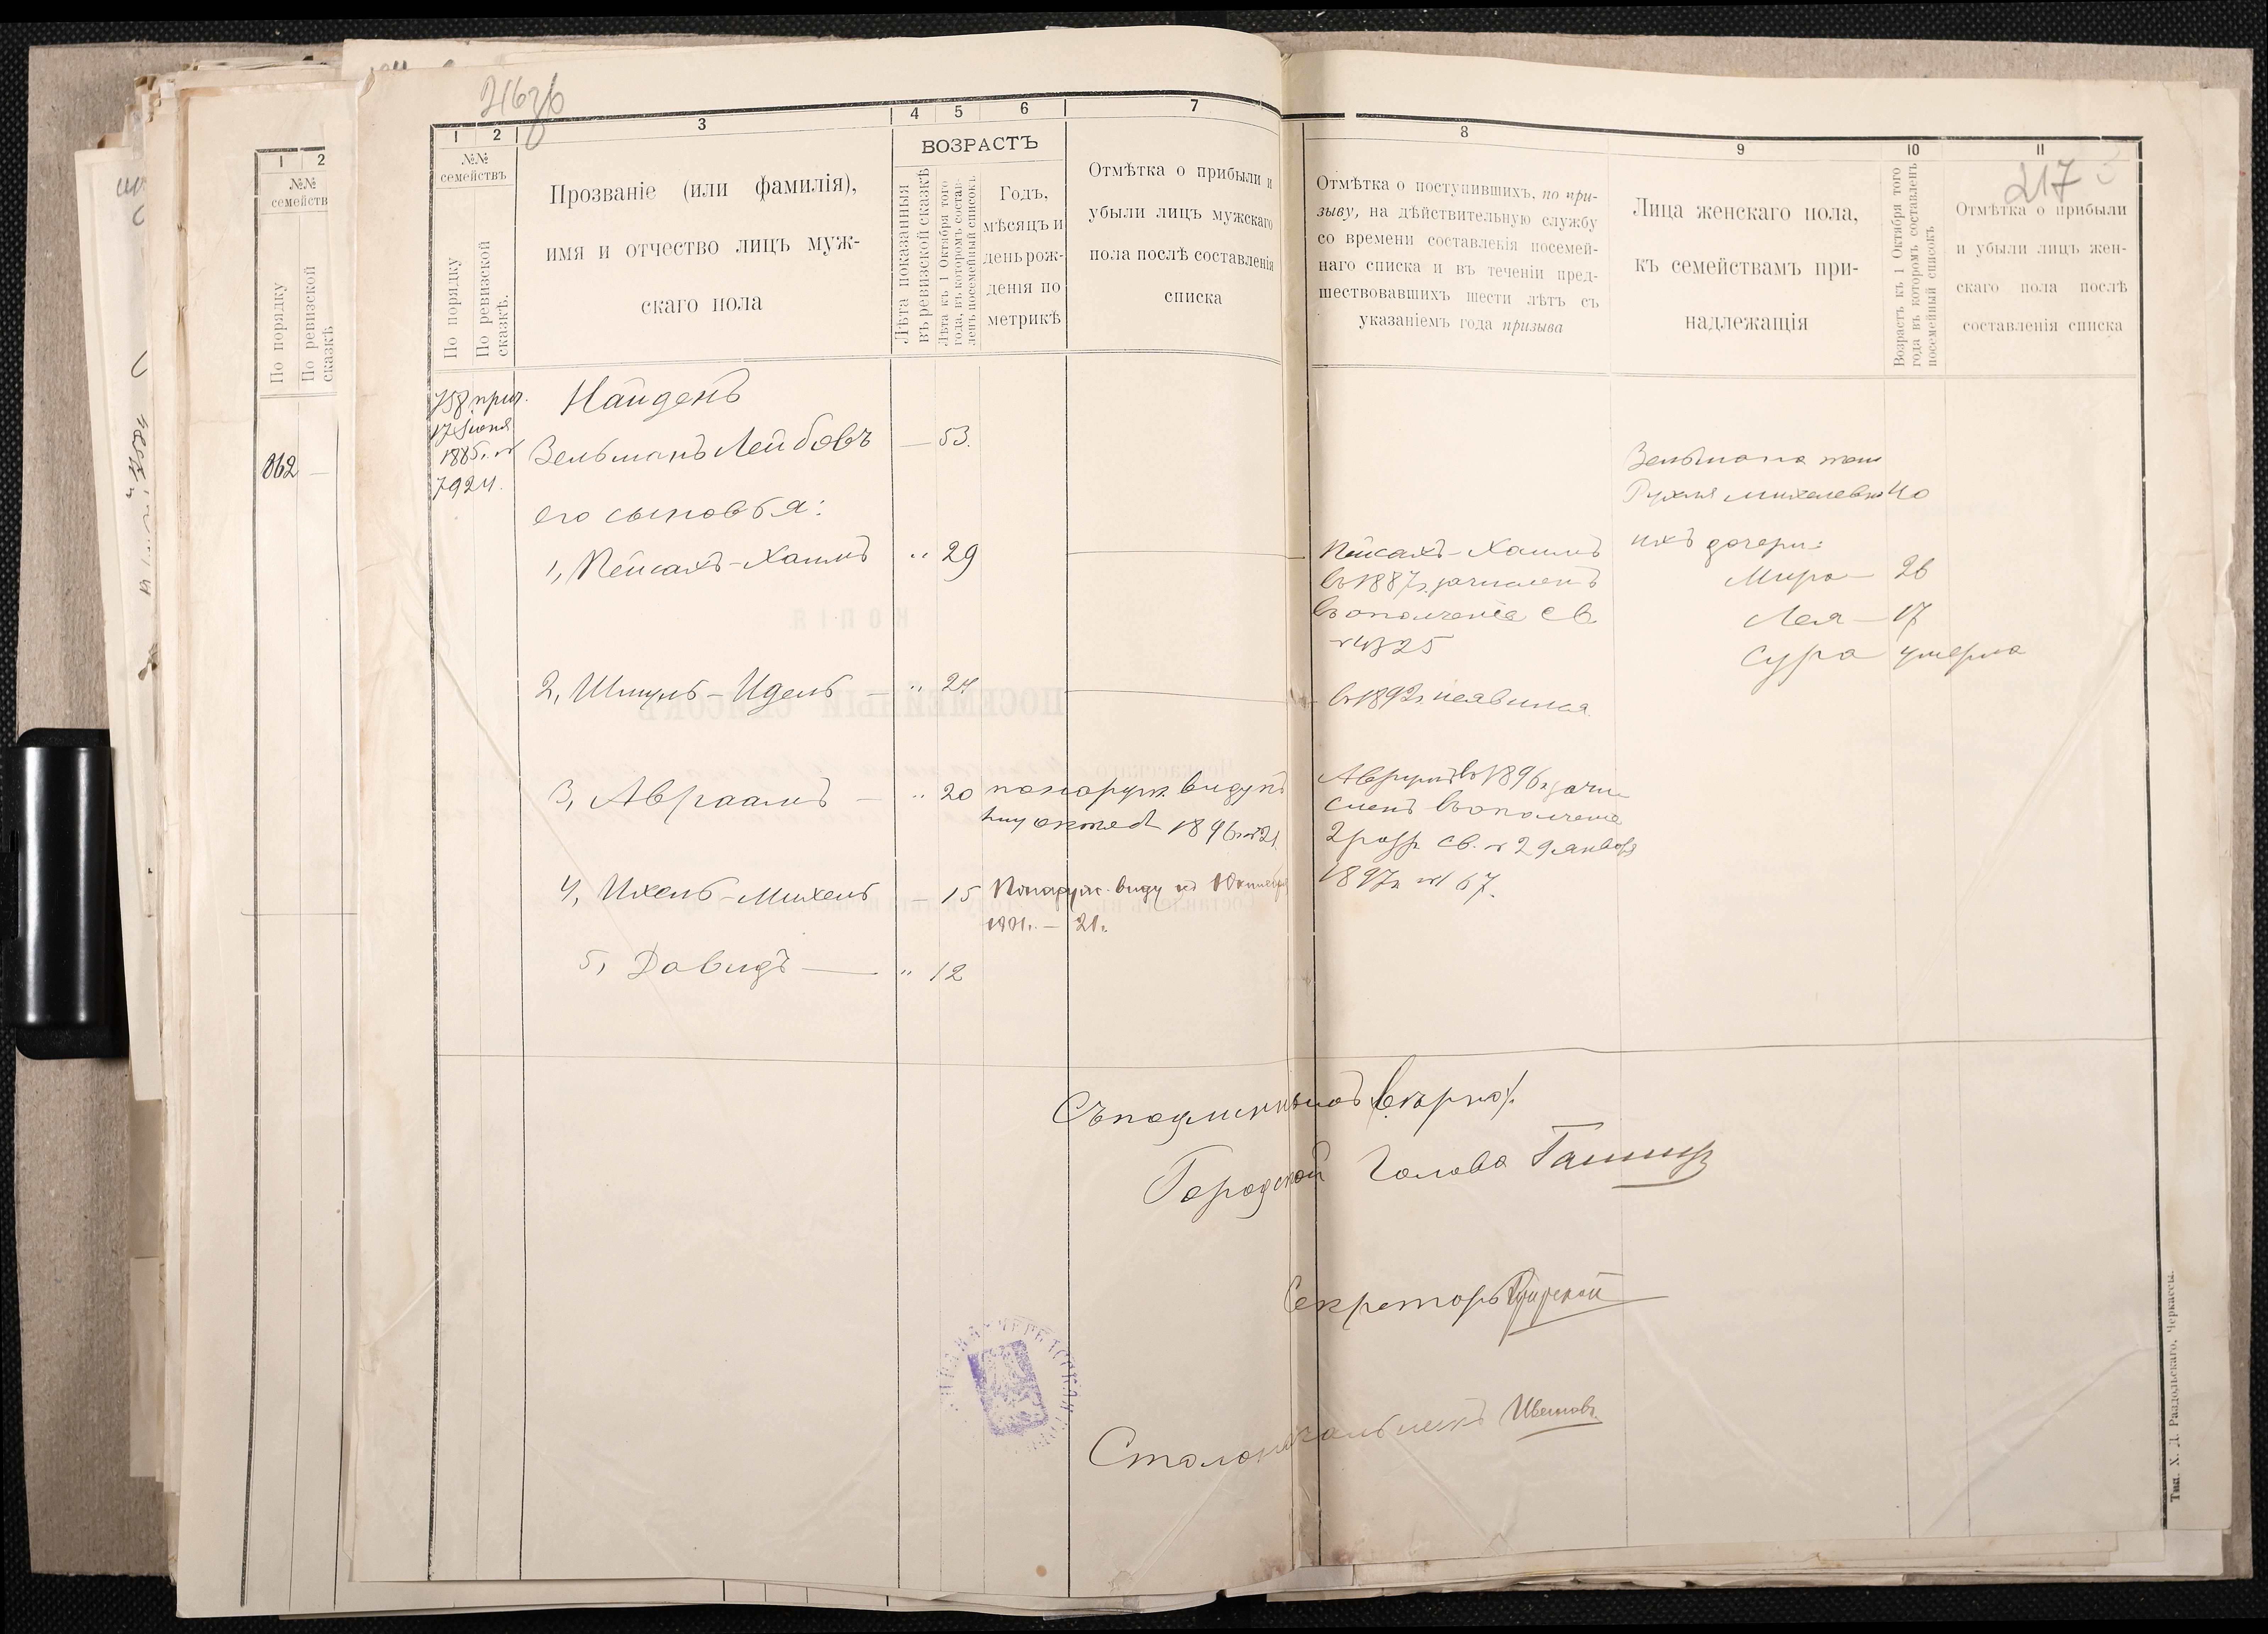 216 об
217
1 2 3 4 5 6 7 8 9 10 11
№№ семействъ
По порядку
По ревизской сказкѣ.
Прозваніе (или фамилія),
имя и отчество лицъ муж-
скаго пола
ВОЗРАСТЪ
Лѣта показанныя
въ ревизской сказкѣ
Лѣта къ 1 Октября того
года, въ которомъ состав-
ленъ посемейный списокъ.
Годъ,
мѣсяцъ и
день рож-
денія по
метрикѣ
Отмѣтка о прибыли и
убыли лицъ мужскаго
пола послѣ составленія
списка
Отмѣтка о поступившихъ, по при-
зыву, на дѣйствительную службу
со времени составленія посемей-
наго списка и въ теченіи пред-
шествовавшихъ шести лѣтъ съ
указаніемъ года призыва
Лица женскаго пола,
къ семействамъ при-
надлежащія
Возрастъ къ 1 Октября того
года въ которомъ составленъ
посемейный списокъ
Отмѣтка о прибыли
и убыли лицъ жен-
скаго пола послѣ
составленія списка
1 2
№№
семейств
По порядку
По ревизской
сказкѣ
862 —
758 прич.
17 Іюня
1885. №
7924.
Найденъ
Зельманъ Лейбовъ — 53.
его сыновья:
1, Пейсахъ-Хаимъ " 29
2, Шмуль-Идель — " 24
3, Авраамъ — " 20
4, Ихель-Михель — 15
5, Давидъ — " 12
по наруж. виду къ
1896 г. 21
По наруж. виду къ 1 Октября
1901 г. — 21 г.
Пейсахъ-Хаимъ
въ 1887 г. зачисленъ
въ ополченіе св.
№ 4325
въ 1892 г. неявился
въ 1896 г. зачи
сленъ въ ополченіе
2 разр. св. № 29 января
1897 г. № 167.
Зельмана жена
Рухля Михелевна 40
ихъ дочери:
Мира — 26
Лея — 17
Сура умерла
Съ подлиннымъ вѣрно:
Городской Голова
Секретарь
Столоначальникъ
Тип. Х. Д. Раздольскаго, Черкассы.